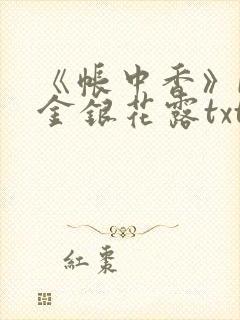 《帐中香》
金银花露txt
红枣